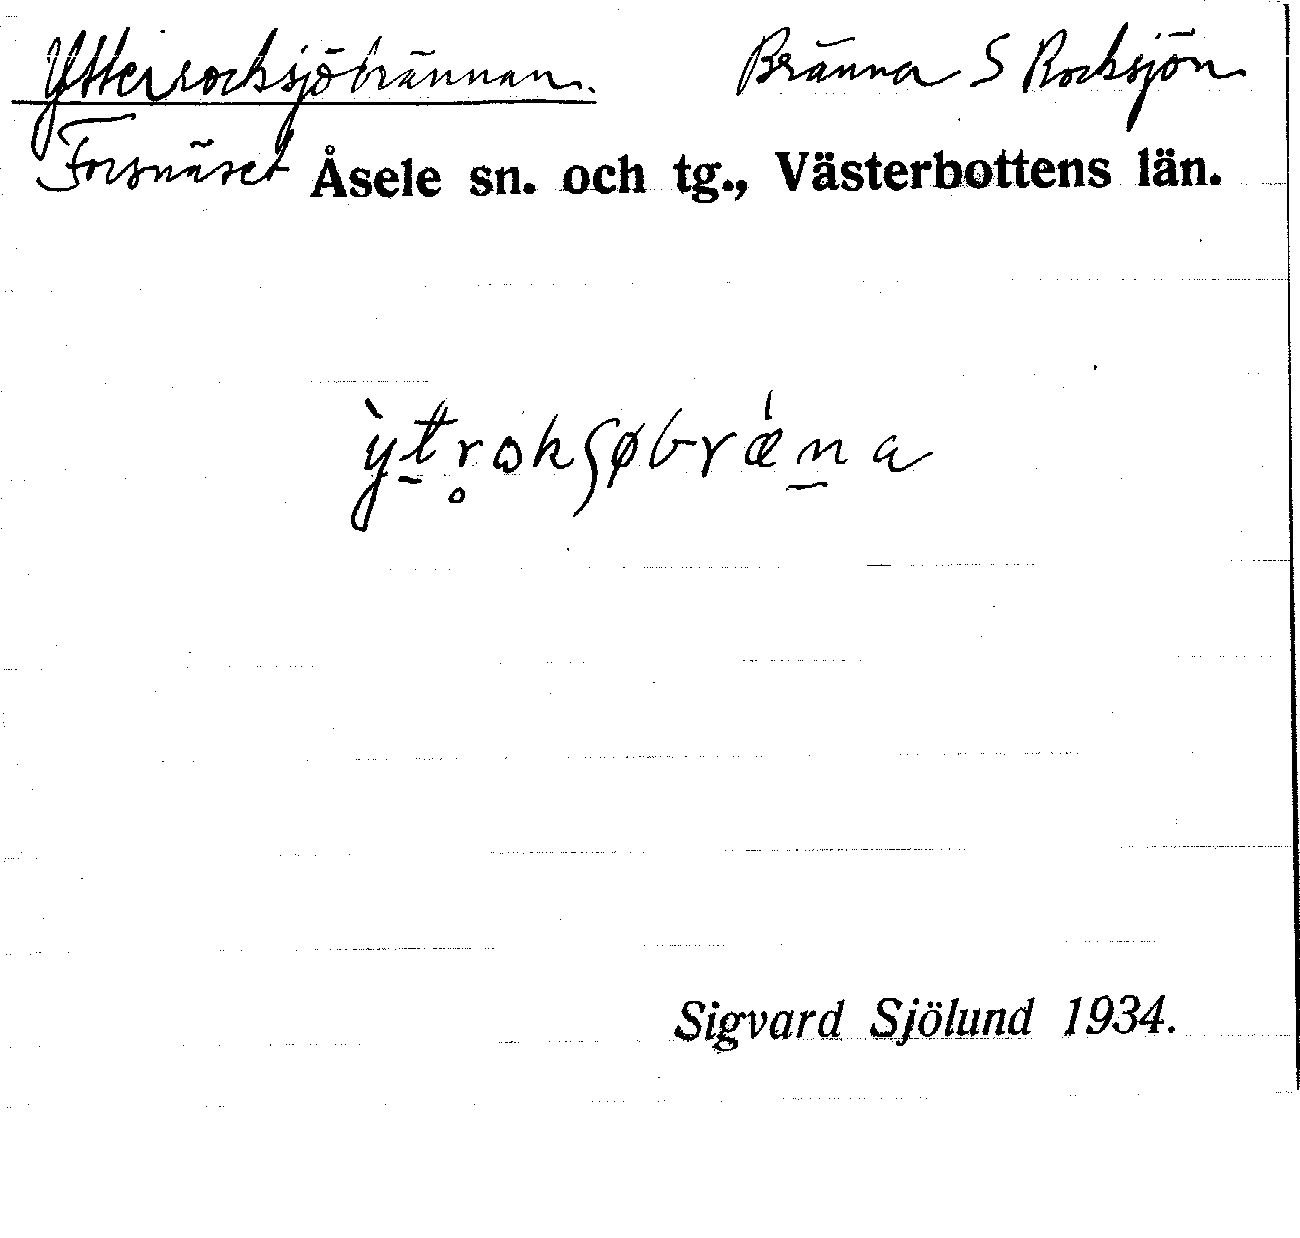 Ytterrocksjöbrännan. Bränna S Rocksjön
Forsnäset Åsele sn. och tg., Västerbottens län.
ỳt̠r̥ɷkʃøbrǽn̠a
Sigvard Sjölund 1934.